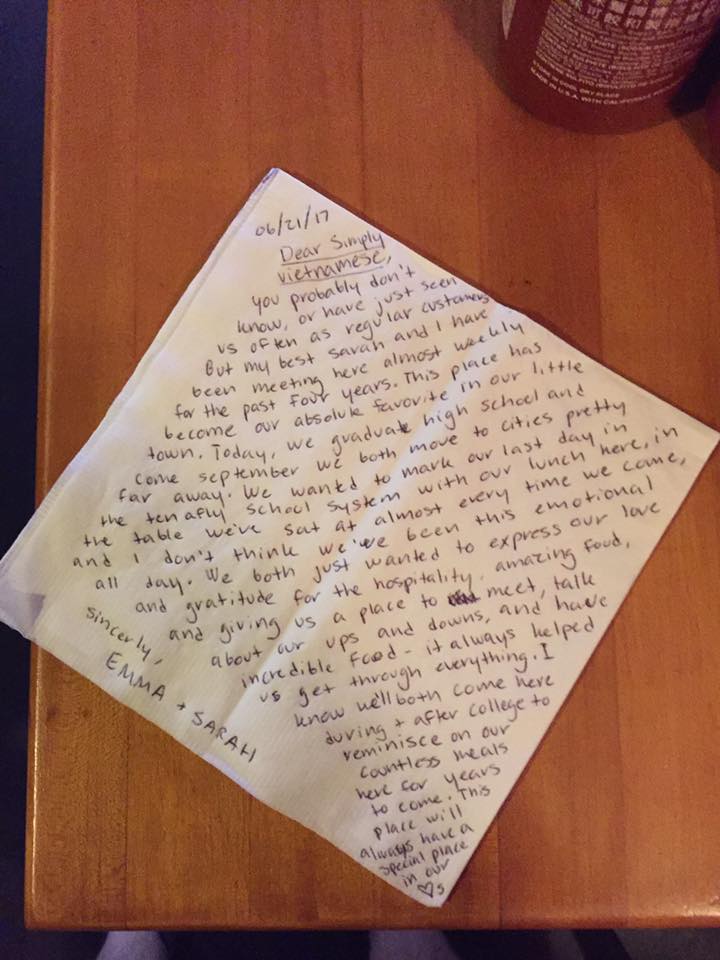 STORE IN COOL DRY PLACE
MADE IN U.S.A. WITH CALIFORNIA
06/21/17
Dear Simply
Vietnamese,
you probably don't
know, or have just seen
us often as regular customers
But my best Sarah and I have
been meeting here almost weekly
for the past four years. This place has
become our absolute favorite in our little
town. Today, we graduate high school and
come september we both move to cities pretty
far away. We wanted to mark our last day in
the tenafly school system with our lunch here, in
the table we've sat at almost every time we came,
and I don't think we've been this emotional
all day. We both just wanted to express our love
and gratitude for the hospitality, amazing food,
and giving us a place to meet, talk
about our ups and downs, and have
incredible food - it always helped
us get through everything. I
know we'll both come here
during + after college to
reminisce on our
countless meals
here for years
to come. This
place will
always have a
special place
in our
♡s
Sincerly,
EMMA + SARAH